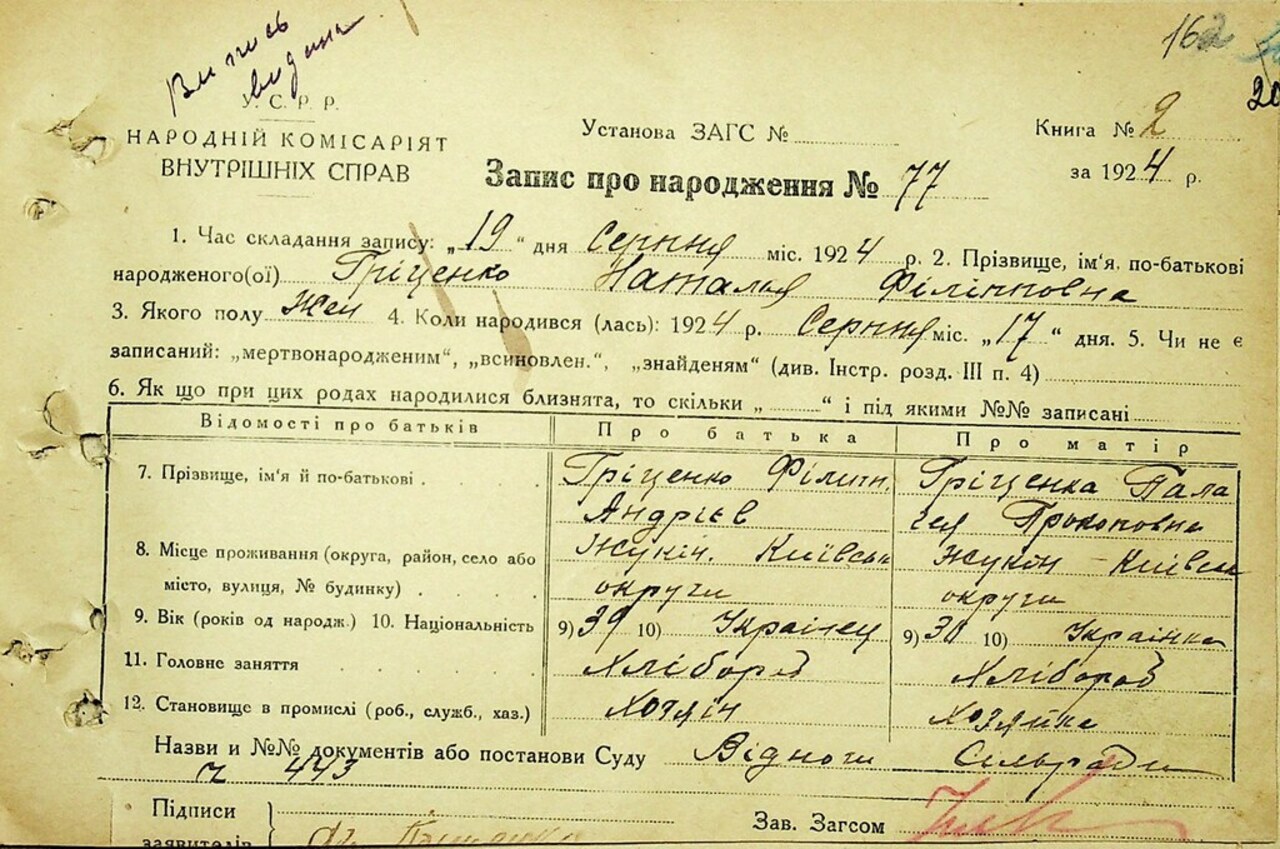 Випись
видана
162
20
У. С. Р. Р.
НАРОДНІЙ КОМІСАРІЯТ
ВНУТРІШНІХ СПРАВ
Установа ЗАГС №
Книга № 2
за 1924 р.
Запис про народження № 77
1. Час складання запису: „19" дня Серпня міс. 1924 р. 2. Прізвище, ім'я, по-батькові
народженого(ої) Гріценко Наталья Філіпповна
3. Якого полу Жен 4. Коли народився (лась): 1924 р. Серпня міс. „17" дня. 5. Чи не є
записаний: „мертвонародженим", „всиновлен.", „знайденям" (див. Інстр. розд. III п. 4)
6. Як що при цих родах народилися близнята, то скільки „ " і під якими №№ записані
Відомості про батьків Про батька Про матір
7. Прізвище, ім'я й по-батькові Гріценко Філіпп Гріценка Пала
Андрієв гея Прокоповна
8. Місце проживання (округа, район, село або Жукін. Київськ Жукін - Київськ
місто, вулиця, № будинку) округи округи
9. Вік (років од народж.) 10. Національність 9) 39 10) Українец 9) 30 10) Українка
11. Головне заняття Хлібороб Хлібороб
12. Становище в промислі (роб., служб., хаз.) Хозяін Хозяйка
Назви и №№ документів або постанови Суду Відноги Сільради
ч 443
Підписи
заявителів
Зав. Загсом